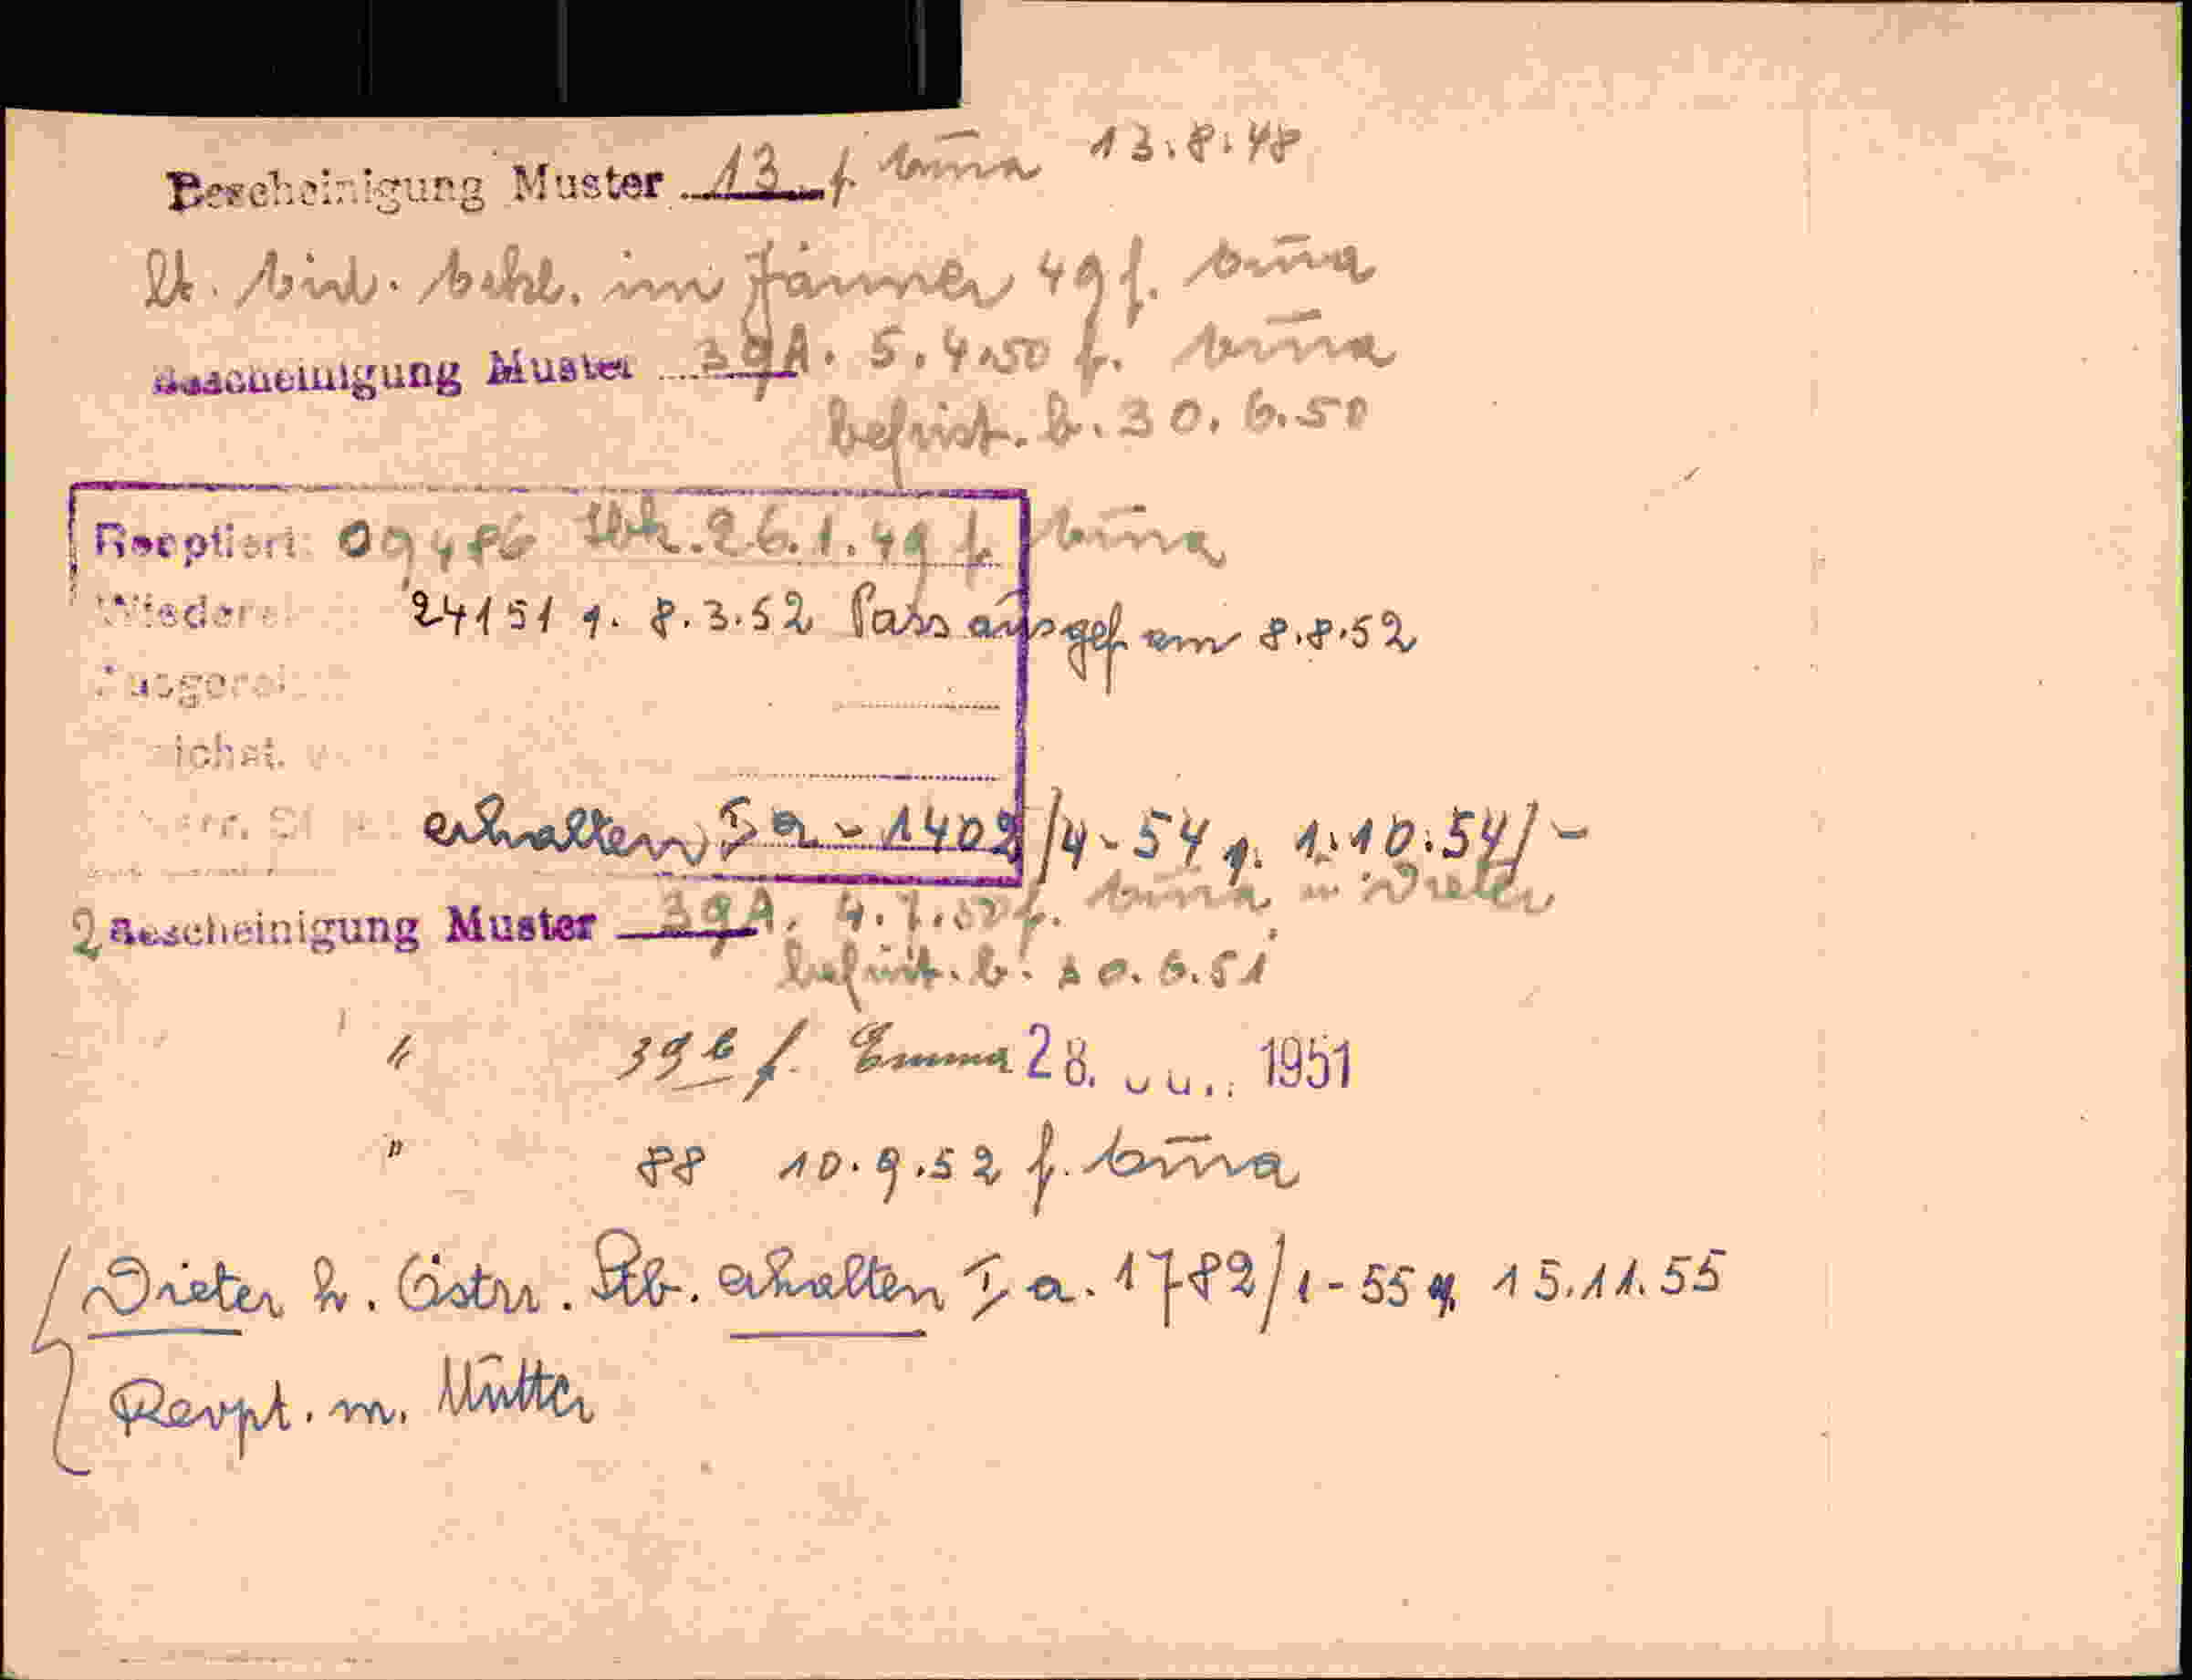 Bescheinigung Muster 13 f. Em̄a 13.8.48
lt. im Jänner 49 f. Em̄a
Bescheinigung Muster 39A. 5.4.50 f. Em̄a
befrist. b. 30.6.50
Reoptiert: 09486 26.1.49 f. Em̄a
24151 v. 8.3.52 Pass ausgef am 8.8.52
erhalten I a - 1402/4-54 v. 1.10.54/-
2 Bescheinigung Muster 39A. 4.7.50 f. Em̄a u Dieter
befrist. b. 30.6.51
" 39b f. Emma 28. 1951
" 88 10.9.52 f. Em̄a
Dieter h. Östrr. Stb. erhalten I a. 1782/1-55 v. 15.11.55
Reopt. m. Mutter